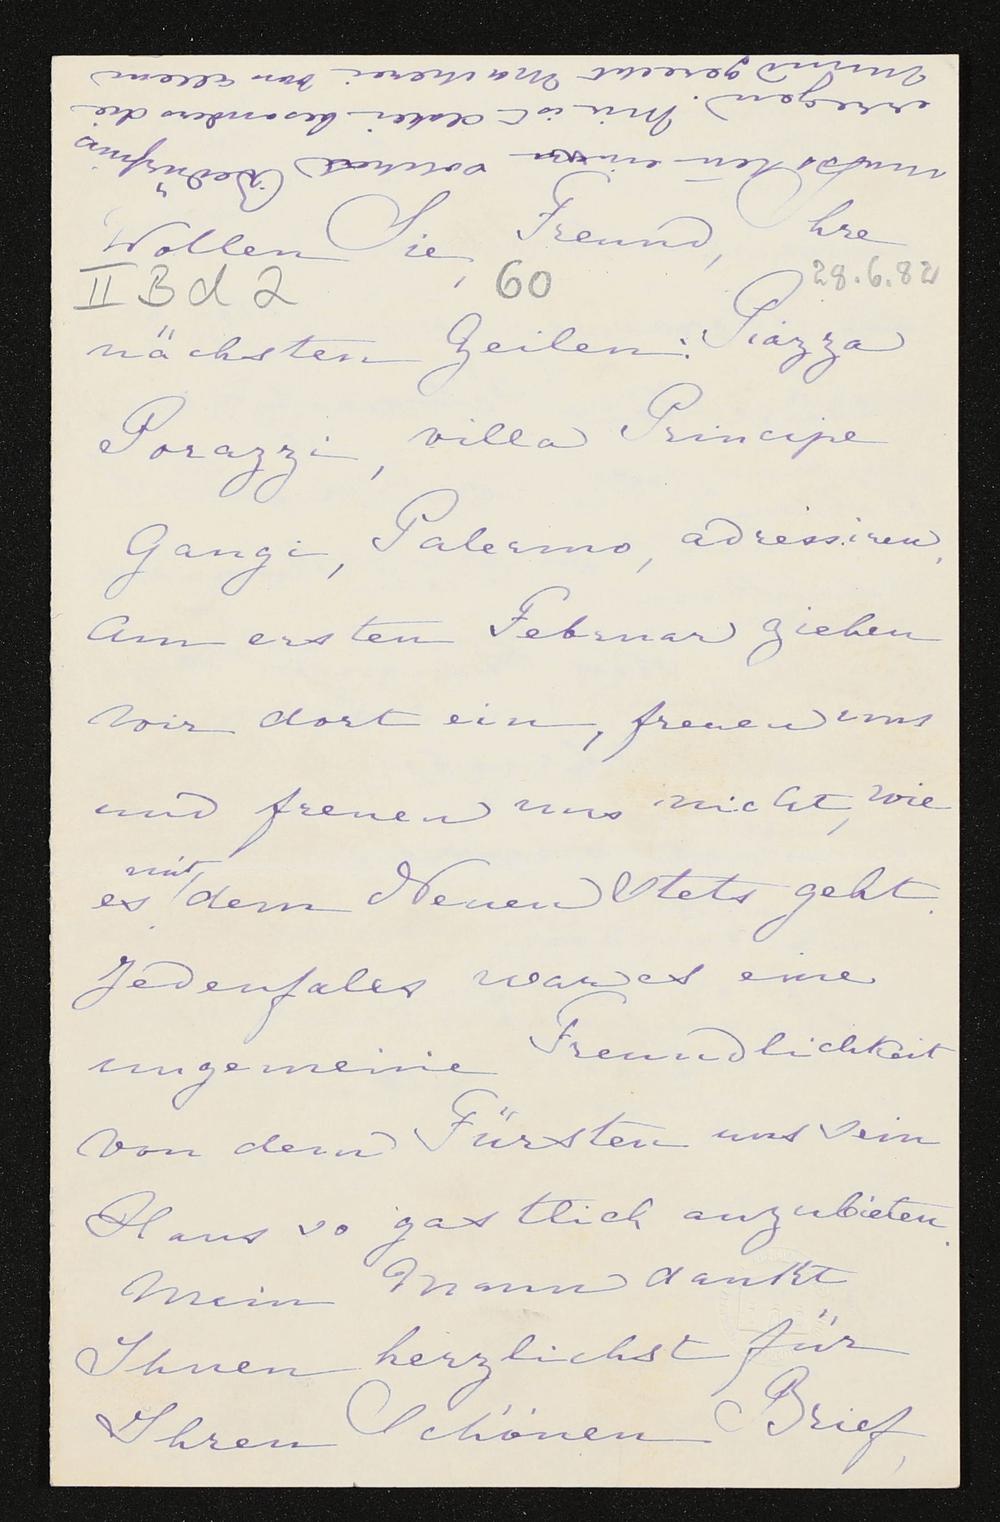 Wollen Sie, Freund, Ihre
II B d 2 60 28.6.82
nächsten Zeilen: Piazza
Porazzi, villa Principe
Gangi, Palermo, adressiren,
am ersten Februar ziehen
wir dort ein, freuen uns
und freuen uns nicht, wie
es mit dem Neuen stets geht.
Jedenfalls war es eine
ungemeine Freundlichkeit
von dem Fürsten uns sein
Haus so gastlich anzubieten.
Mein Mann dankt
Ihnen herzlichst für
Ihren Schönen Brief,
ein solches Bedürfnis
erregen. Mir ist dabei besonders die
von allem